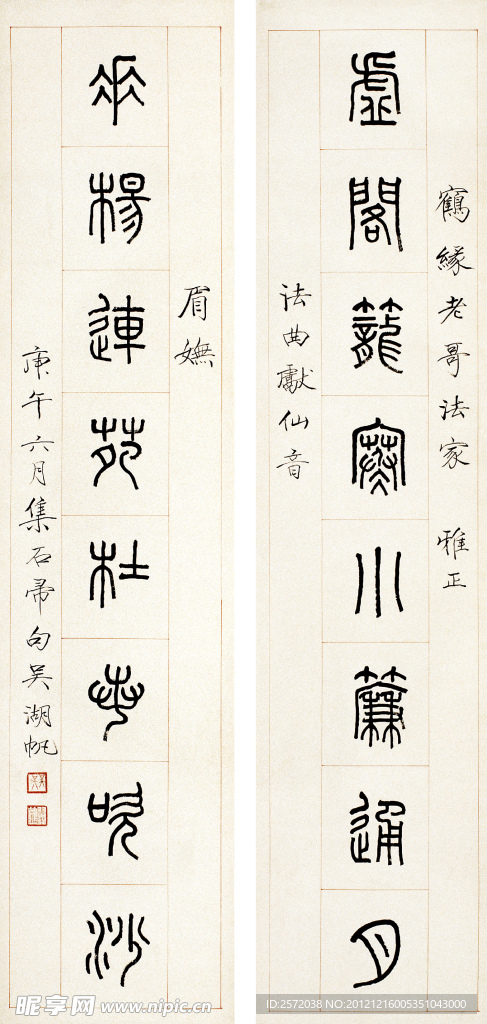 鶴緣老哥法家 雅正
虛閣籠寒小簾通月
法曲獻仙音
眉嫵
垂楊連苑杜若吹沙
庚午六月集石帚句吳湖帆
昵享网 www.nipic.cn
ID:2572038 NO:20121216005351043000